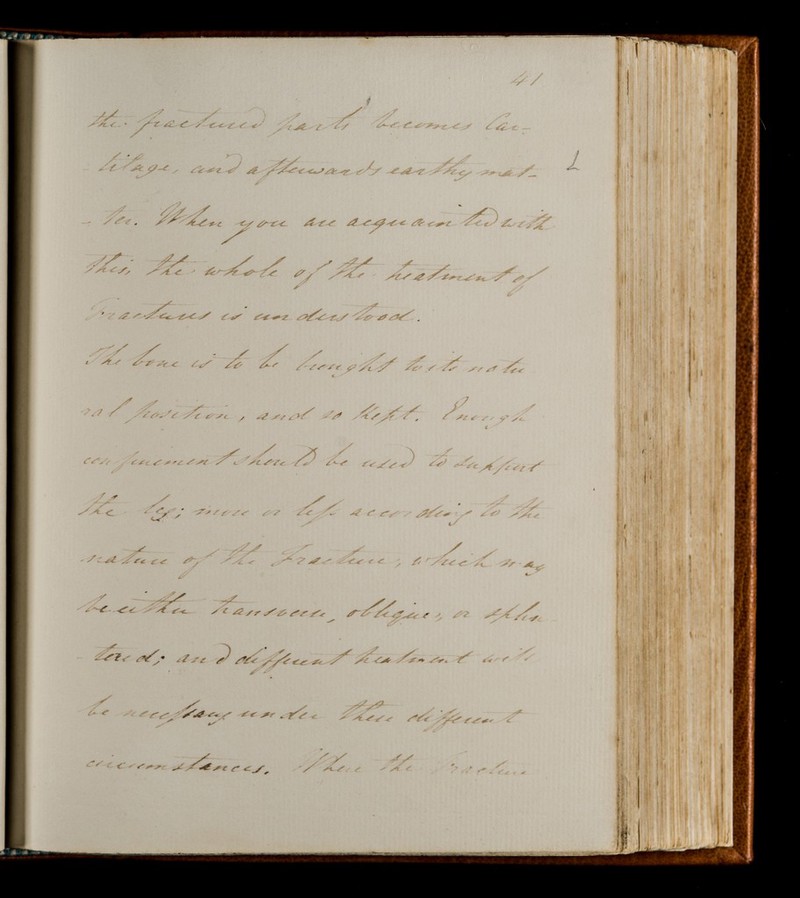 41
the fractured parts becomes Car-
tilage, and afterwards earthy mat- L
- ter. When you are acquainted with
this, the whole of the treatment of
Fractures is understood.
The bone is to be brought to its natu
ral position, and so kept. Enough
confinement should be used to support
the leg; more or less according to the
nature of the Fracture, which may
be either transverse, oblique, or splin
- tered; and different treatment will
be necessary under these different
circumstances. When the Fracture